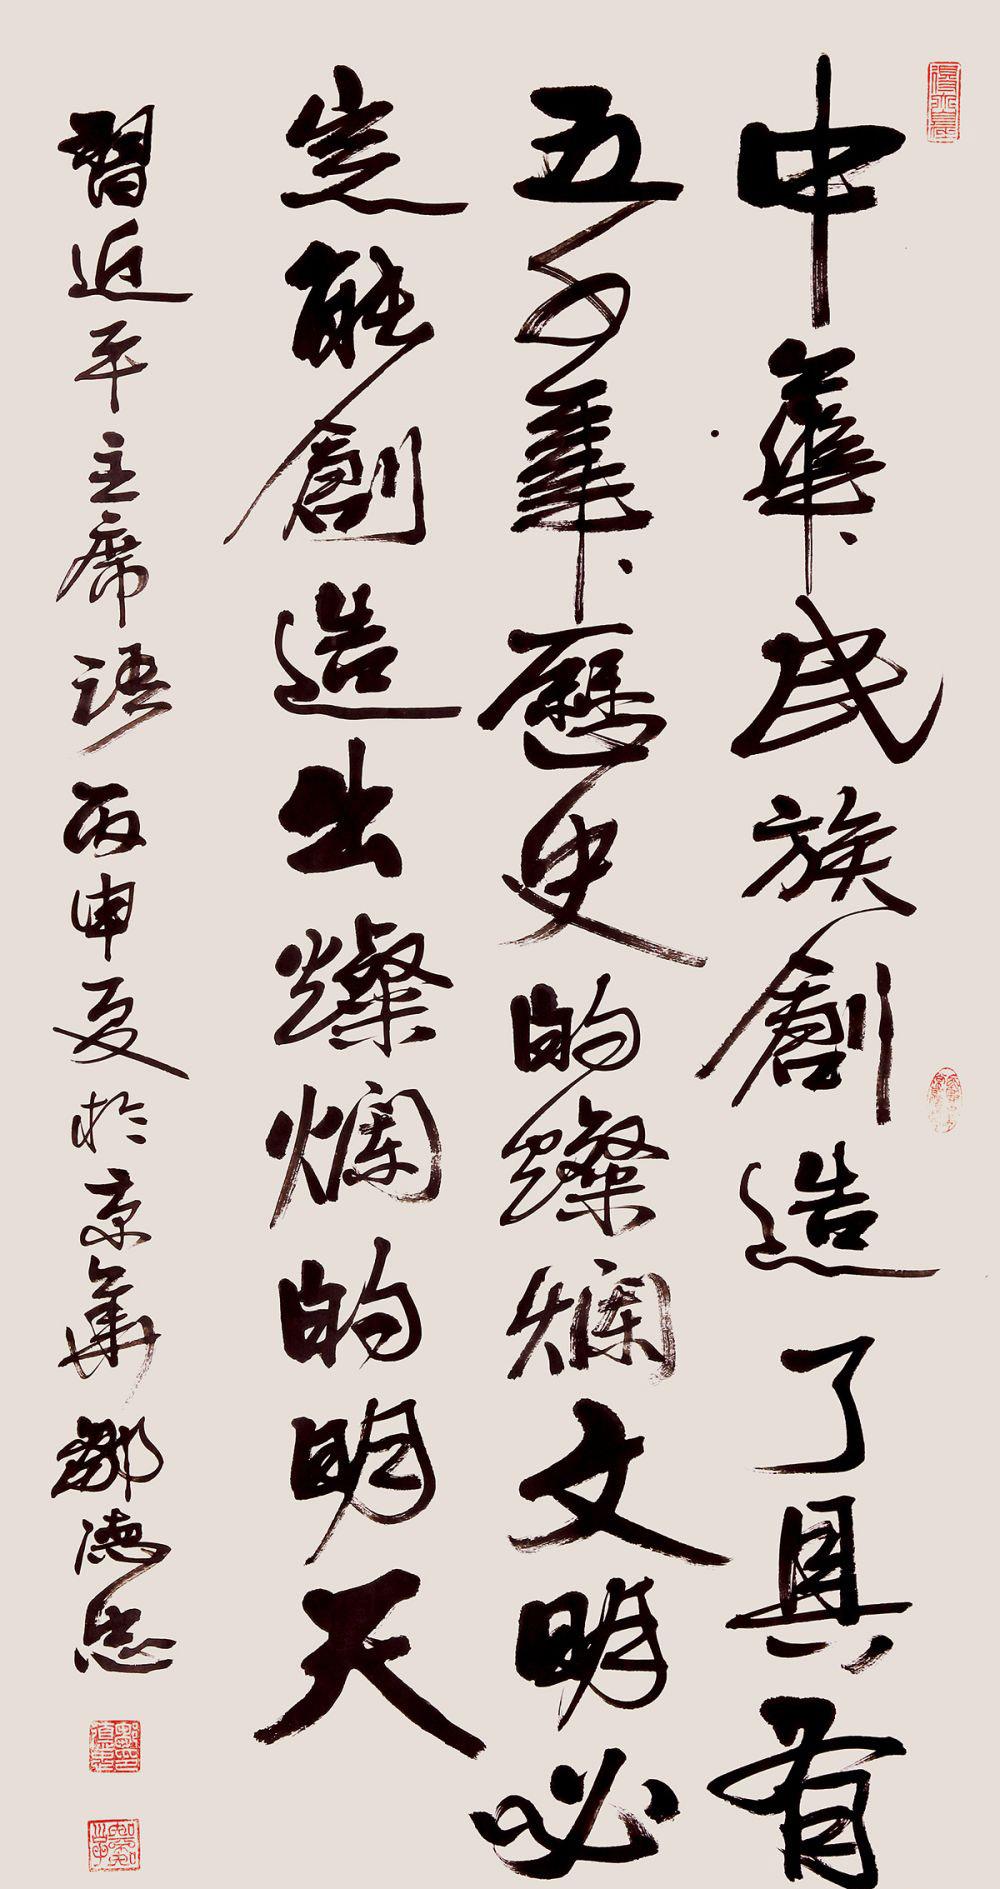 中華民族創造了具有
五千年歷史的燦爛文明必
定能創造出燦爛的明天
習近平主席語丙申夏於京華鄒德忠